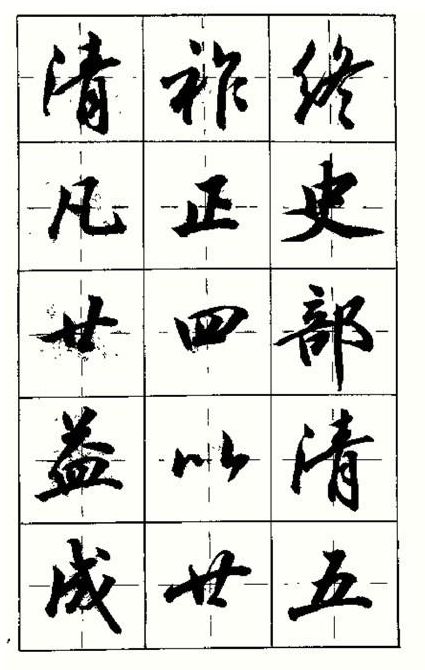 清祚終
凡正史
廿四部
益以清
成廿五